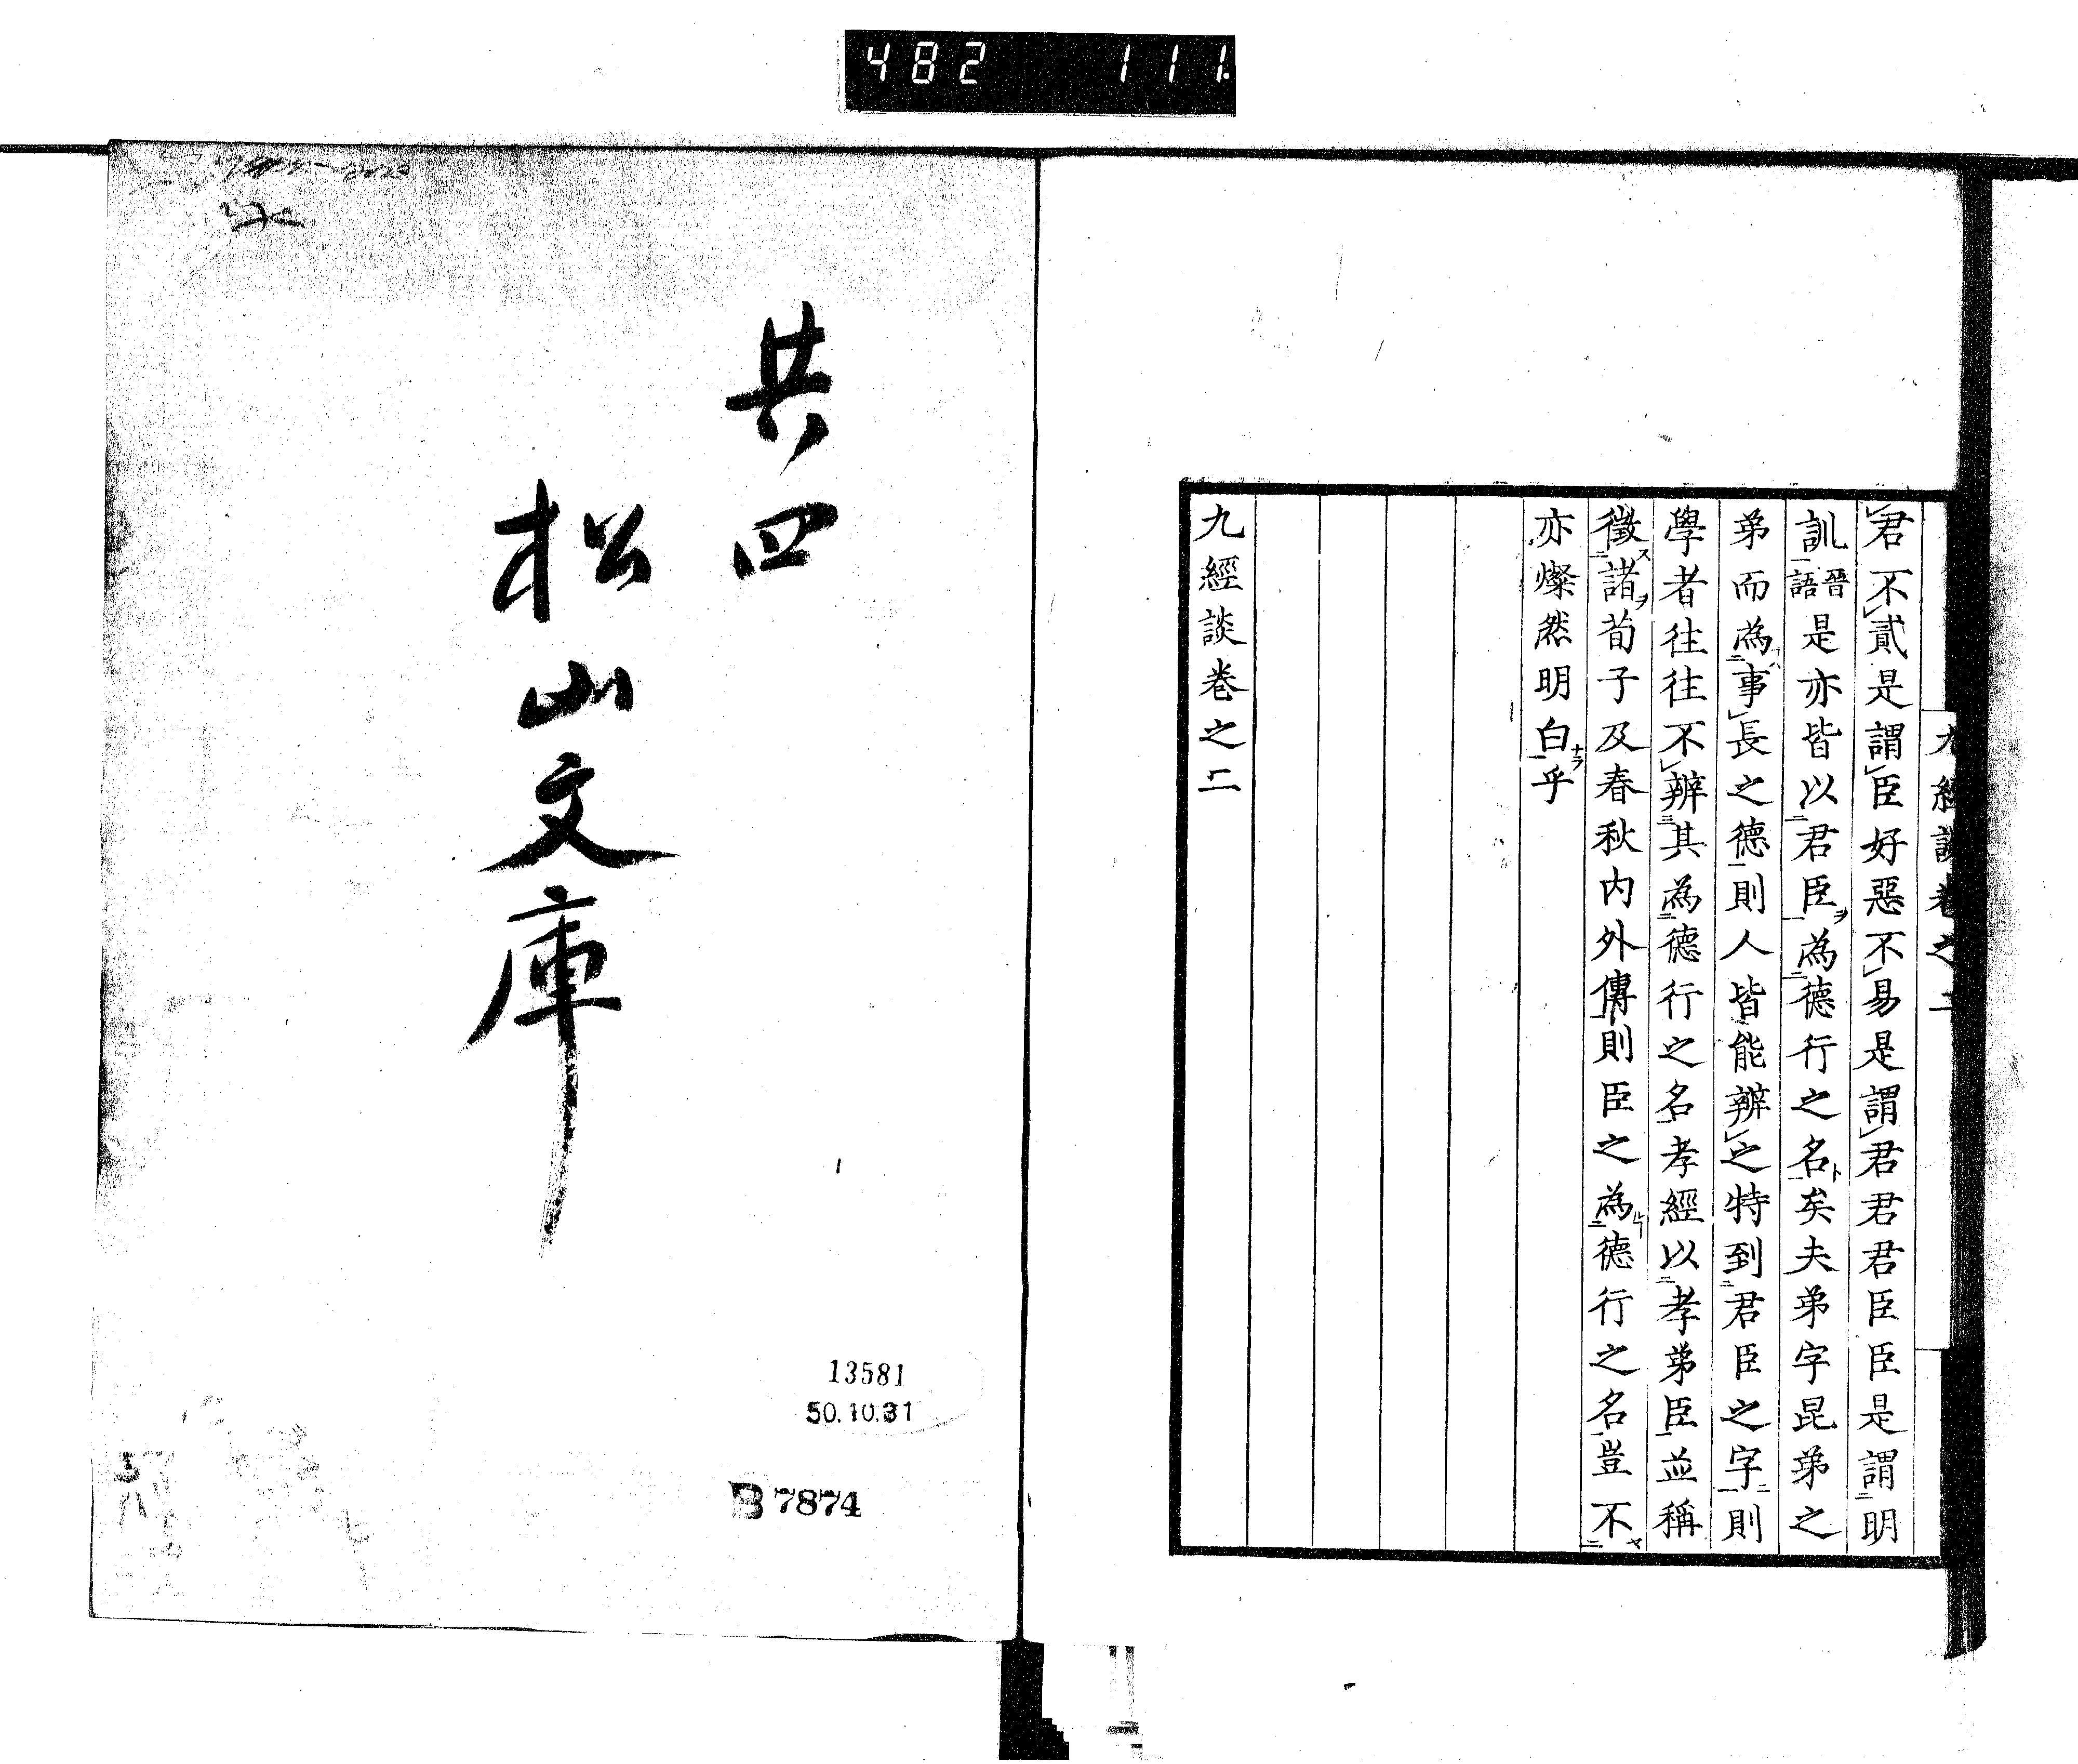 482 111
九經談卷之二
君不貳是謂臣好惡不易是謂君君君臣臣是謂明
訓晉語是亦皆以君臣ヲ為德行之名ト矣夫弟字昆弟之
弟而為事長之德則人皆能辨之特到君臣之字則
學者往往不辨其為德行之名孝經以孝弟臣並稱
徵ス諸ヲ荀子及春秋內外傳則臣之為德行之名豈不
亦燦然明白ナラ乎
九經談卷之二
共四
松山文庫
13581
50.10.31
B7874